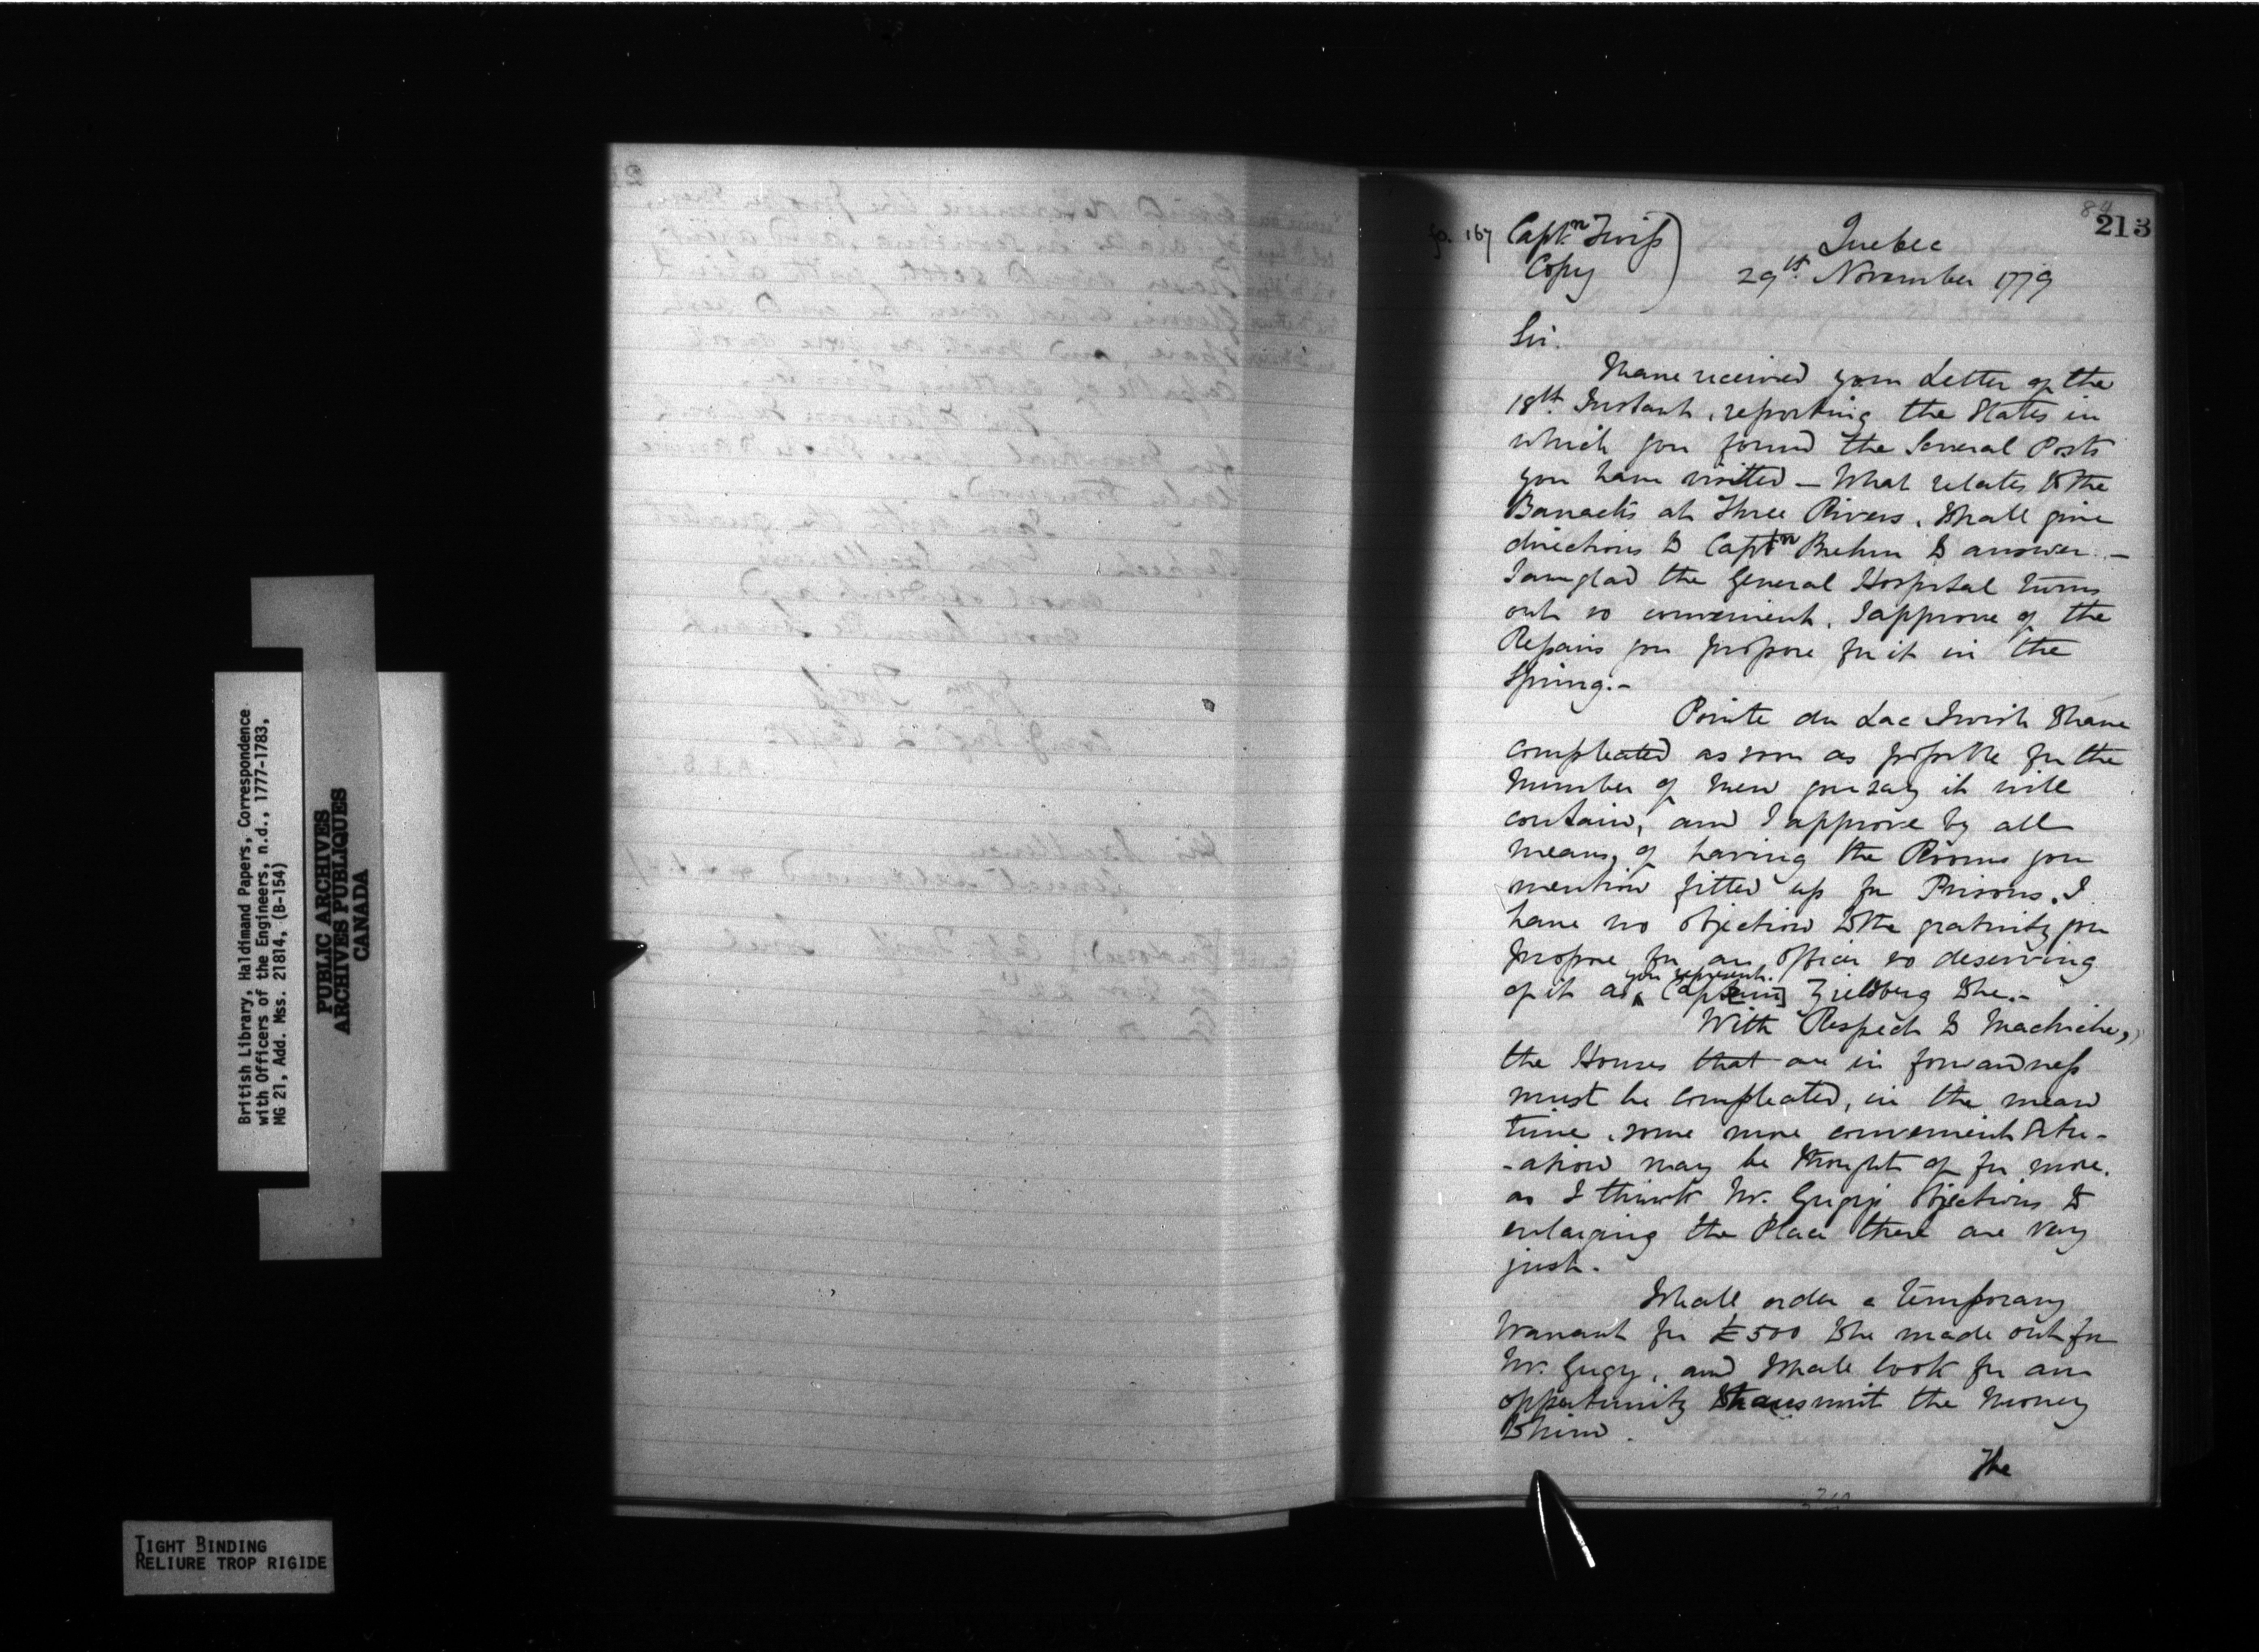 British Library, Haldimand Papers, Correspondence
with Officers of the Engineers, n.d., 1777-1783,
MG 21, Add. Mss. 21814, (B-154)
PUBLIC ARCHIVES
ARCHIVES PUBLIQUES
CANADA
TIGHT BINDING
RELIURE TROP RIGIDE
84
213
fo. 167 Captn Twiss
Copy
Quebec
29th November 1779
Sir.
I have received your Letter of the
18th Instant, reporting the States in
which you found the Several Posts
you have visited - What relates to the
Barracks at Three Rivers, I shall give
directions to Captn Brehm to answer. -
I am glad the General Hospital turns
out so convenient, I approve of the
Repairs you propose for it in the
Spring. -
Pointe du Lac I wish to have
compleated as soon as possible for the
Number of Men you say it will
contain, and I approve by all
means, of having the Rooms you
mention fitted up for Prisons. I
have no objection to the gratuity you
propose for an Officer so deserving
of it as you represent Cap[tain] to be. -
With Respect to Machiche,
the Houses that are in forwardness
must be compleated, in the mean
time, some more convenient Situ-
-ation may be thought of for more,
as I think Mr. Gugy's Objections to
enlarging the Place there are very
just. -
I shall order a temporary
Warrant for £500 to be made out for
Mr. Gugy, and I shall look for an
oppertunity to transmit the Money
to him.
The